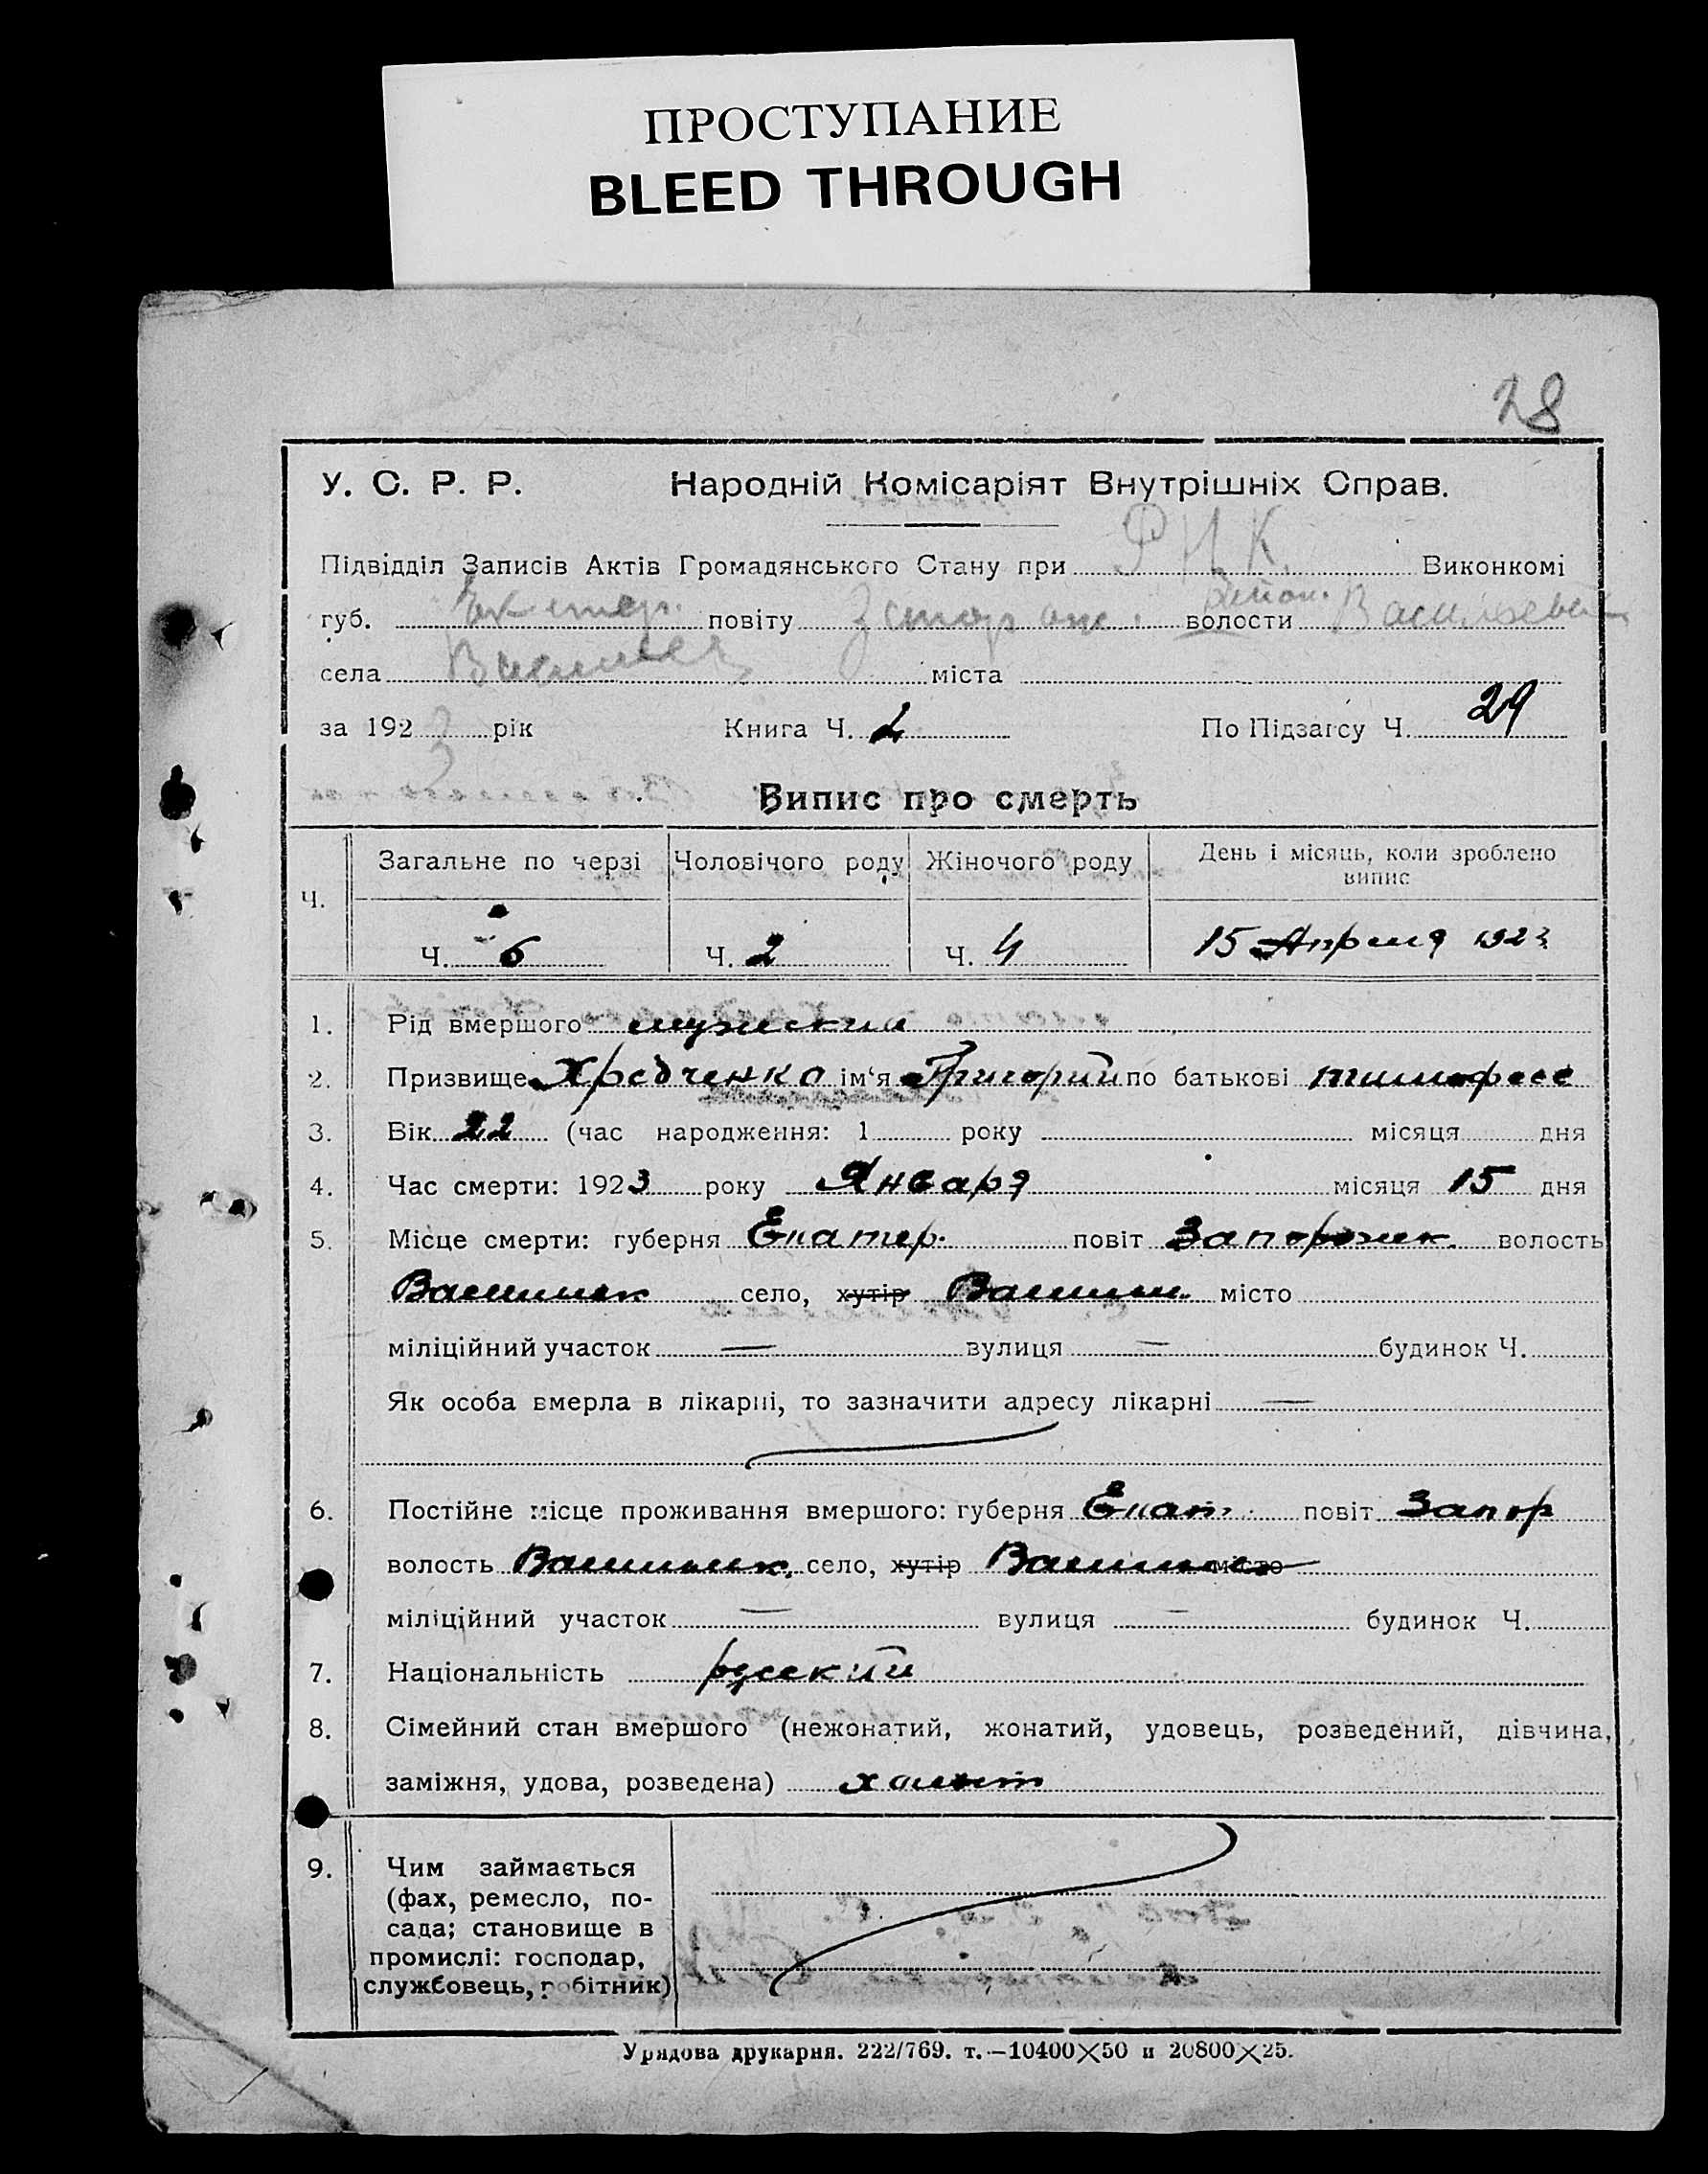 ПРОСТУПАНИЕ
BLEED THROUGH
28
У. С. Р. Р. Народній Комісаріят Внутрішніх Справ.
Підвідділ Записів Актів Громадянського Стану при РИК. Виконкомі
губ. повіту волости
села міста
за 1923 рік Книга Ч. По Підзагсу Ч. 29
Випис про смерть
Ч. Загальне по черзі Чоловічого роду Жіночого роду День і місяць, коли зроблено випис
Ч. 6 Ч. 2 Ч. 4 15 Апреля 1923
1. Рід вмершого мужский
2. Призвище ім‘я Григорий по батькові
3. Вік 22 (час народження: 1 року місяця дня
4. Час смерти: 1923 року Января місяця 15 дня
5. Місце смерти: губерня Екатер. повіт Запорожск. волость
село, хутір місто
міліційний участок — вулиця — будинок Ч.
Як особа вмерла в лікарні, то зазначити адресу лікарні —
6. Постійне місце проживання вмершого: губерня Екат. повіт Запор
волость село, хутір місто
міліційний участок — вулиця — будинок Ч.
7. Національність русский
8. Сімейний стан вмершого (нежонатий, жонатий, удовець, розведений, дівчина,
заміжня, удова, розведена)
9. Чим займається
(фах, ремесло, по-
сада; становище в
промислі: господар,
службовець, робітник)
Урядова друкарня. 222/769. т.—10400×50 и 20800×25.